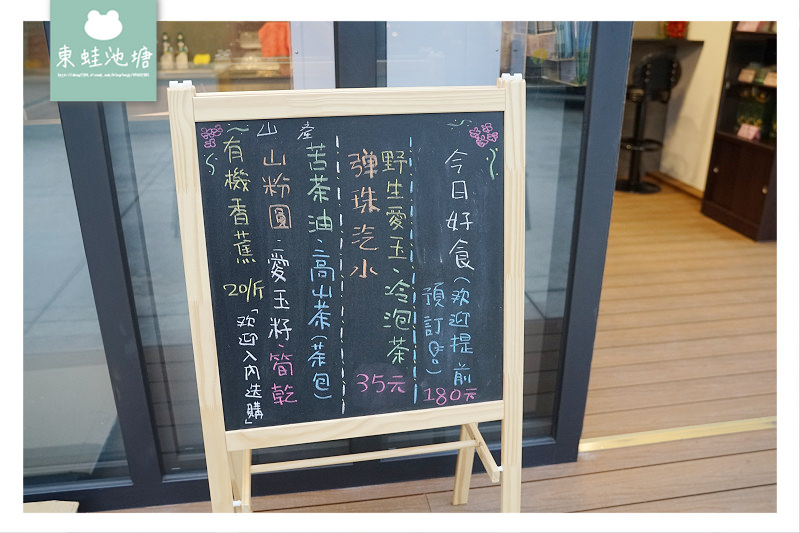 東蛙池塘
今日好食(欢迎提前
預訂喔)
180元
野生愛玉、冷泡茶
弹珠汽水
35元
山產
苦茶油、高山茶(茶包)
山粉圓、愛玉籽、筍乾
有機香蕉 20/斤
「欢迎入內选購」